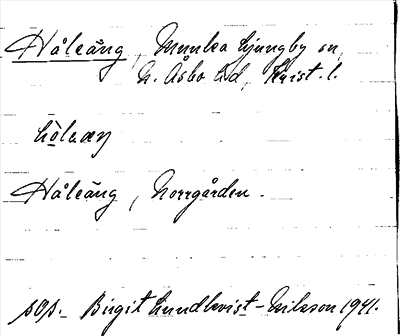 Håleäng, Munka Ljungby sn,
N. Åsbo hd, Krist. l.
Håleäng, Norrgården.
sOp. Birgit Lundkvist-Nilsson 1941.